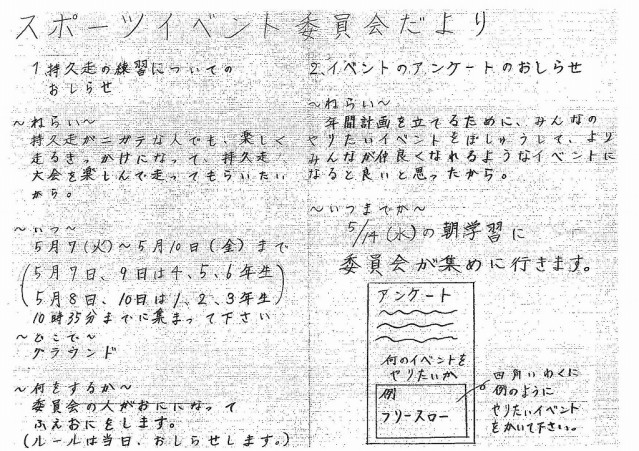 スポーツイベント委員会だより
1.持久走の練習についての
おしらせ
～ねらい～
持久走がニガテな人でも、楽しく
走るきっかけになって、持久走
大会を楽しんで走ってもらいたい
から。
～いつ～
5月7(火)～5月10日(金)まで
(5月7日、9日は4、5、6年生
5月8日、10日は1、2、3年生)
10時35分までに集まって下さい
～どこで～
グラウンド
～何をするか～
委員会の人がおにになって
ふえおにをします。
(ルールは当日、おしらせします。)
2.イベントのアンケートのおしらせ
～ねらい～
年間計画を立てるために、みんなの
やりたいイベントをぼしゅうして、より
みんなが仲良くなれるようなイベントに
なると良いと思ったから。
～いつまでか～
5/14(水)の朝学習に
委員会が集めに行きます。
アンケート
何のイベントを
やりたいか
例
フリースロー
四角いわくに
例のように
やりたいイベント
をかいて下さい。